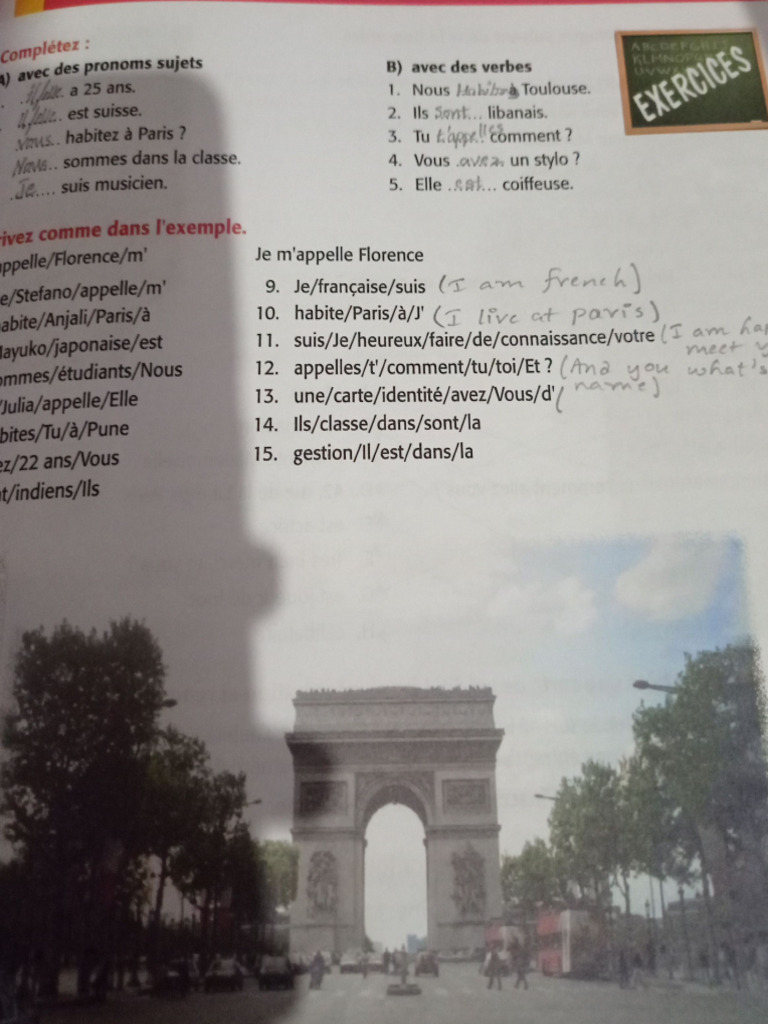 Complétez :
A) avec des pronoms sujets
Il/elle.. a 25 ans.
Il/elle.. est suisse.
vous.. habitez à Paris ?
Nous.. sommes dans la classe.
Je.... suis musicien.
B) avec des verbes
1. Nous habitons à Toulouse.
2. Ils sont... libanais.
3. Tu t'appelles comment ?
4. Vous avez. un stylo ?
5. Elle .est... coiffeuse.
ABCDEFGH
EXERCICES
rivez comme dans l'exemple.
appelle/Florence/m' Je m'appelle Florence
e/Stefano/appelle/m'
abite/Anjali/Paris/à
Mayuko/japonaise/est
ommes/étudiants/Nous
/Julia/appelle/Elle
bites/Tu/à/Pune
ez/22 ans/Vous
t/indiens/Ils
9. Je/française/suis (I am french)
10. habite/Paris/à/J' (I live at paris)
11. suis/Je/heureux/faire/de/connaissance/votre (I am hap
meet y
12. appelles/t'/comment/tu/toi/Et ? (And you what's
name)
13. une/carte/identité/avez/Vous/d' (
14. Ils/classe/dans/sont/la
15. gestion/Il/est/dans/la